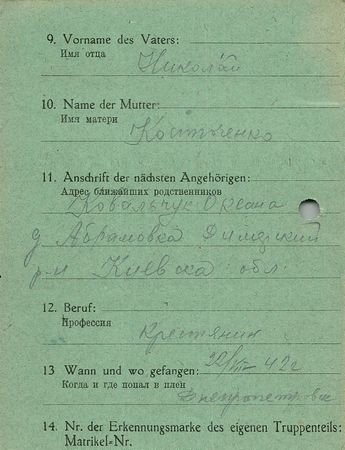 9. Vorname des Vaters:
Имя отца
Николай
10. Name der Mutter:
Имя матери
Костюченко
11. Anschrift der nächsten Angehörigen:
Адрес ближайших родственников
Ковальчук Оксана
д Абрамовка Димерский
р-н Киевска обл.
12. Beruf:
Профессия
Крестянин
13 Wann und wo gefangen: 42г
Когда и где попал в плен
Днепропетровск
14. Nr. der Erkennungsmarke des eigenen Truppenteils:
Matrikel-Nr.